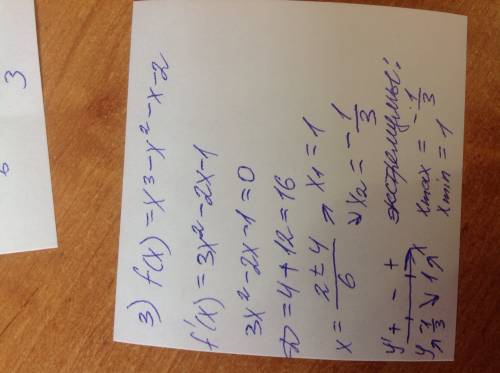 3) f(x) = x³ - x² - x - 2
f'(x) = 3x² - 2x - 1
3x² - 2x - 1 = 0
D = 4 + 12 = 16
x = \frac{2 ± 4}{6} ↗ x₁ = 1
↘ x₂ = -\frac{1}{3}
y' + - + экстремумы:
y ↗ -\frac{1}{3} ↘ 1 ↗ x xmax = -\frac{1}{3}
xmin = 1
3